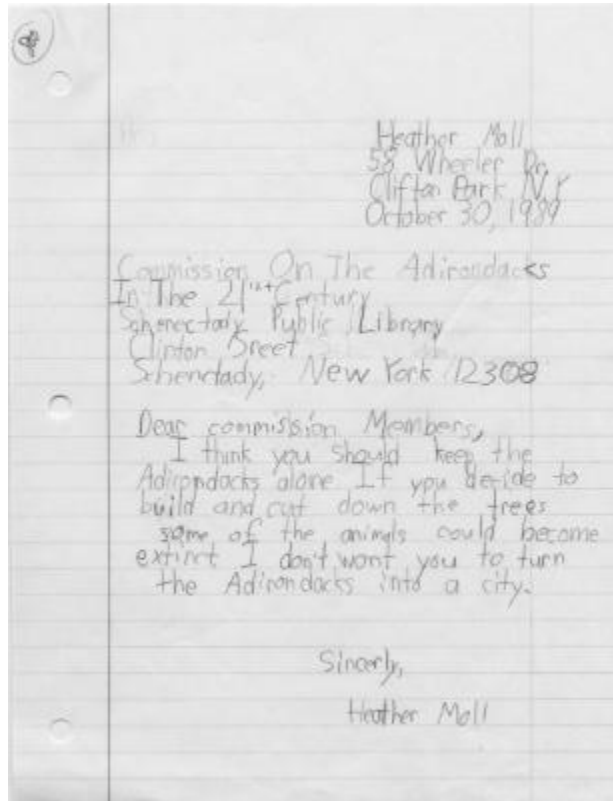 Heather Moll
58 Wheeler Dr.
Clifton Park N.Y
October 30, 1989
Commission On The Adirondacks
In The 21st Century
Schenectady Public Library
Clinton Sreet
Schenctady, New York 12308
Dear commission Members,
I think you should keep the
Adirondacks alone If you decide to
build and cut down the trees
some of the animals could become
extinct I don't want you to turn
the Adirondacks into a city.
Sincerly,
Heather Moll